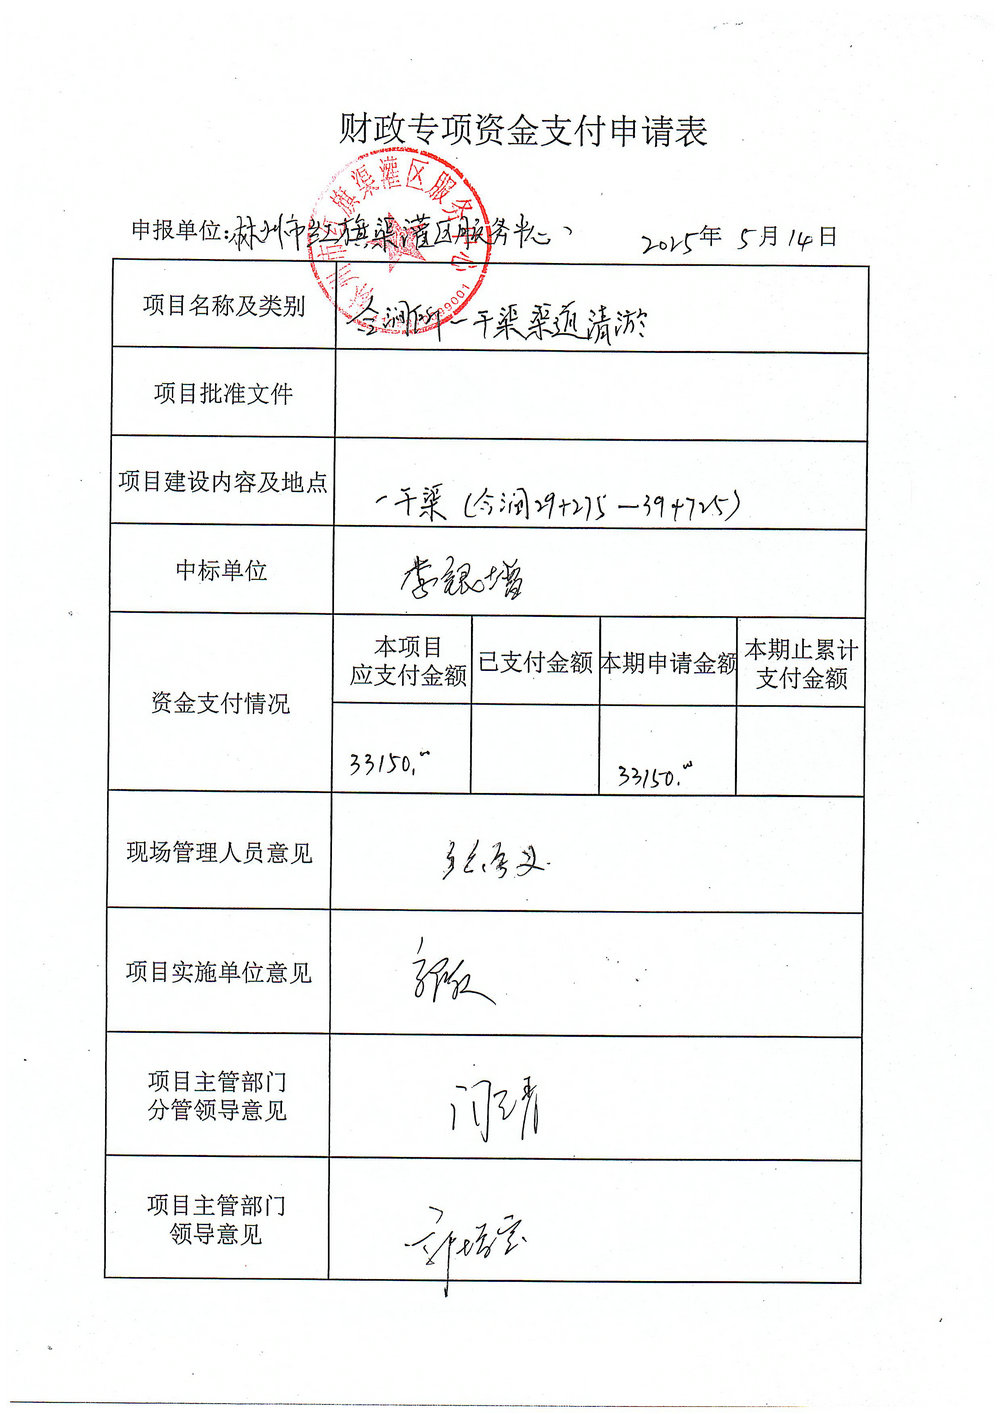 财政专项资金支付申请表
林州市红旗渠灌区服务中心
申报单位:林州市红旗渠灌区服务中心
2025年 5月14日
项目名称及类别
合涧所一干渠渠道清淤
项目批准文件
项目建设内容及地点
一干渠(合涧29+275—39+725)
中标单位
李银增
资金支付情况
本项目
应支付金额
已支付金额
本期申请金额
本期止累计
支付金额
33150.00
33150.00
现场管理人员意见
项目实施单位意见
项目主管部门
分管领导意见
项目主管部门
领导意见